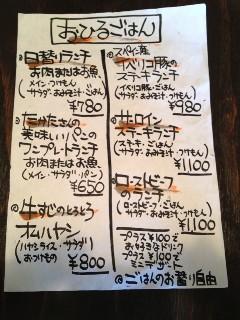 おひるごはん
日替りランチ
お肉またはお魚
(メイン・つけもん
サラダ・おみそ汁・ごはん)
¥780
たさんの
美味しいパンの
ワンプレートランチ
お肉またはお魚
(メイン・サラダ・パン)
¥650
牛すじのとろとろ
オムハヤシ
(ハヤシライス・サラダ)
おつけもの
¥800
スペイン産
イベリコ豚の
ステーキランチ
(イベリコ豚・ごはん
サラダ・おみそ汁・つけもん)
¥980
サーロイン
ステーキランチ
(ステーキ・ごはん
サラダ・おみそ汁・つけもん)
¥1100
ローストビーフ
ランチ
(ローストビーフ・ごはん
サラダ・おみそ汁・つけもん)
¥1100
プラス¥100で
お好きなドリンク
プラス¥100で
ミニデザート
ごはんのお替り自由